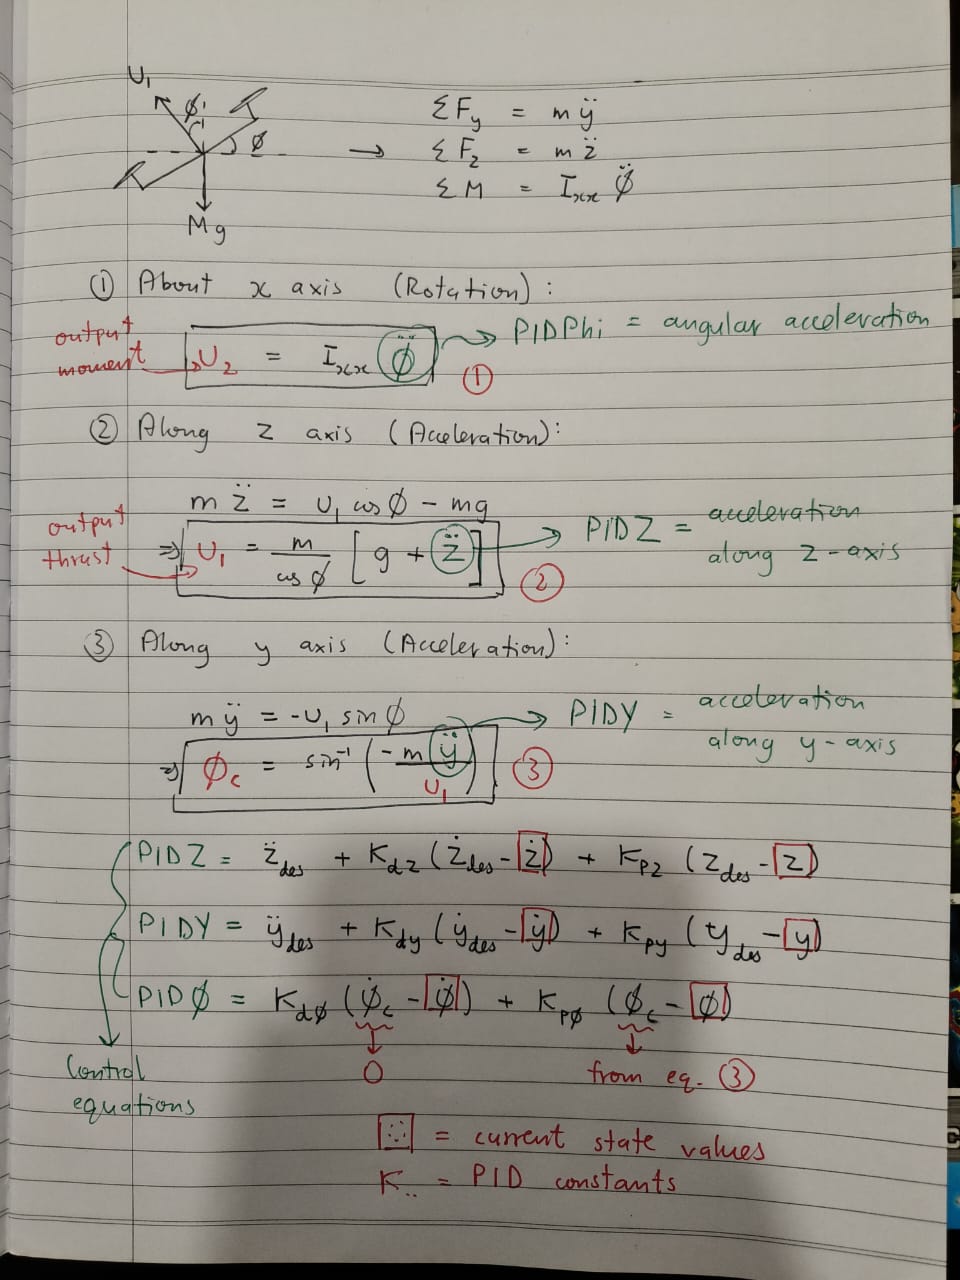 U₁
ϕ
ϕ
Mg
→
ΣF_y = mÿ
ΣF_z = mz̈
ΣM = I_xx ϕ̈
① About x axis (Rotation) :
output moment → U₂ = I_xx ϕ̈ → PIDPhi = angular acceleration
①
② Along z axis (Acceleration) :
m z̈ = U₁ cos ϕ - mg
output thrust → ⇒ U₁ = m/cos ϕ [g + z̈] → PIDZ = acceleration along z-axis
②
③ Along y axis (Acceleration) :
m ÿ = -U₁ sin ϕ
⇒ ϕ_c = sin⁻¹ (-mÿ/U₁) → PIDY = acceleration along y-axis
③
PIDZ = z̈_des + K_dz (ż_des - ż) + K_pz (z_des - z)
PIDY = ÿ_des + K_dy (ẏ_des - ẏ) + K_py (y_des - y)
PIDϕ = K_dϕ (ϕ̇_c - ϕ̇) + K_pϕ (ϕ_c - ϕ)
Control equations
0
from eq. ③
= current state values
K.. = PID constants